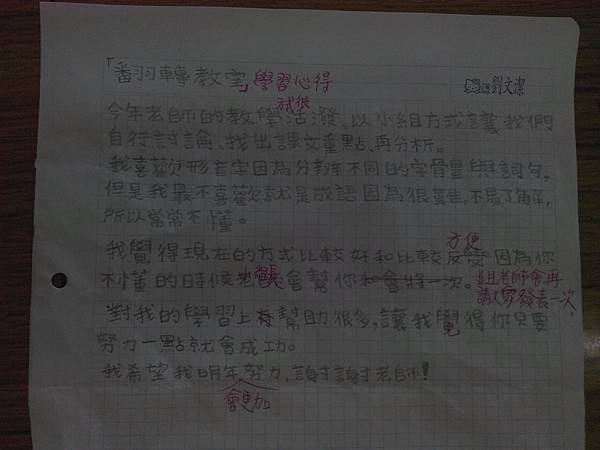 「翻轉教室」學習心得 劉文潔
今年老師的教學方式很活潑、以小組方式讓我們
自行討論、找出課文重點、再分析。
我喜歡形音字因為分辨不同的字音與詞句,
但是我最不喜歡就是成語因為很難,不易了解,
所以常常不懂。
我覺得現在的方式比較好和比較方便因為你
不懂的時候組長會幫你和會將一次。組老師會再
請大家發表一次,
對我的學習上有幫助很多,讓我覺得你只要
努力一點就會成功。
我希望我明年會更加努力,謝謝老師!